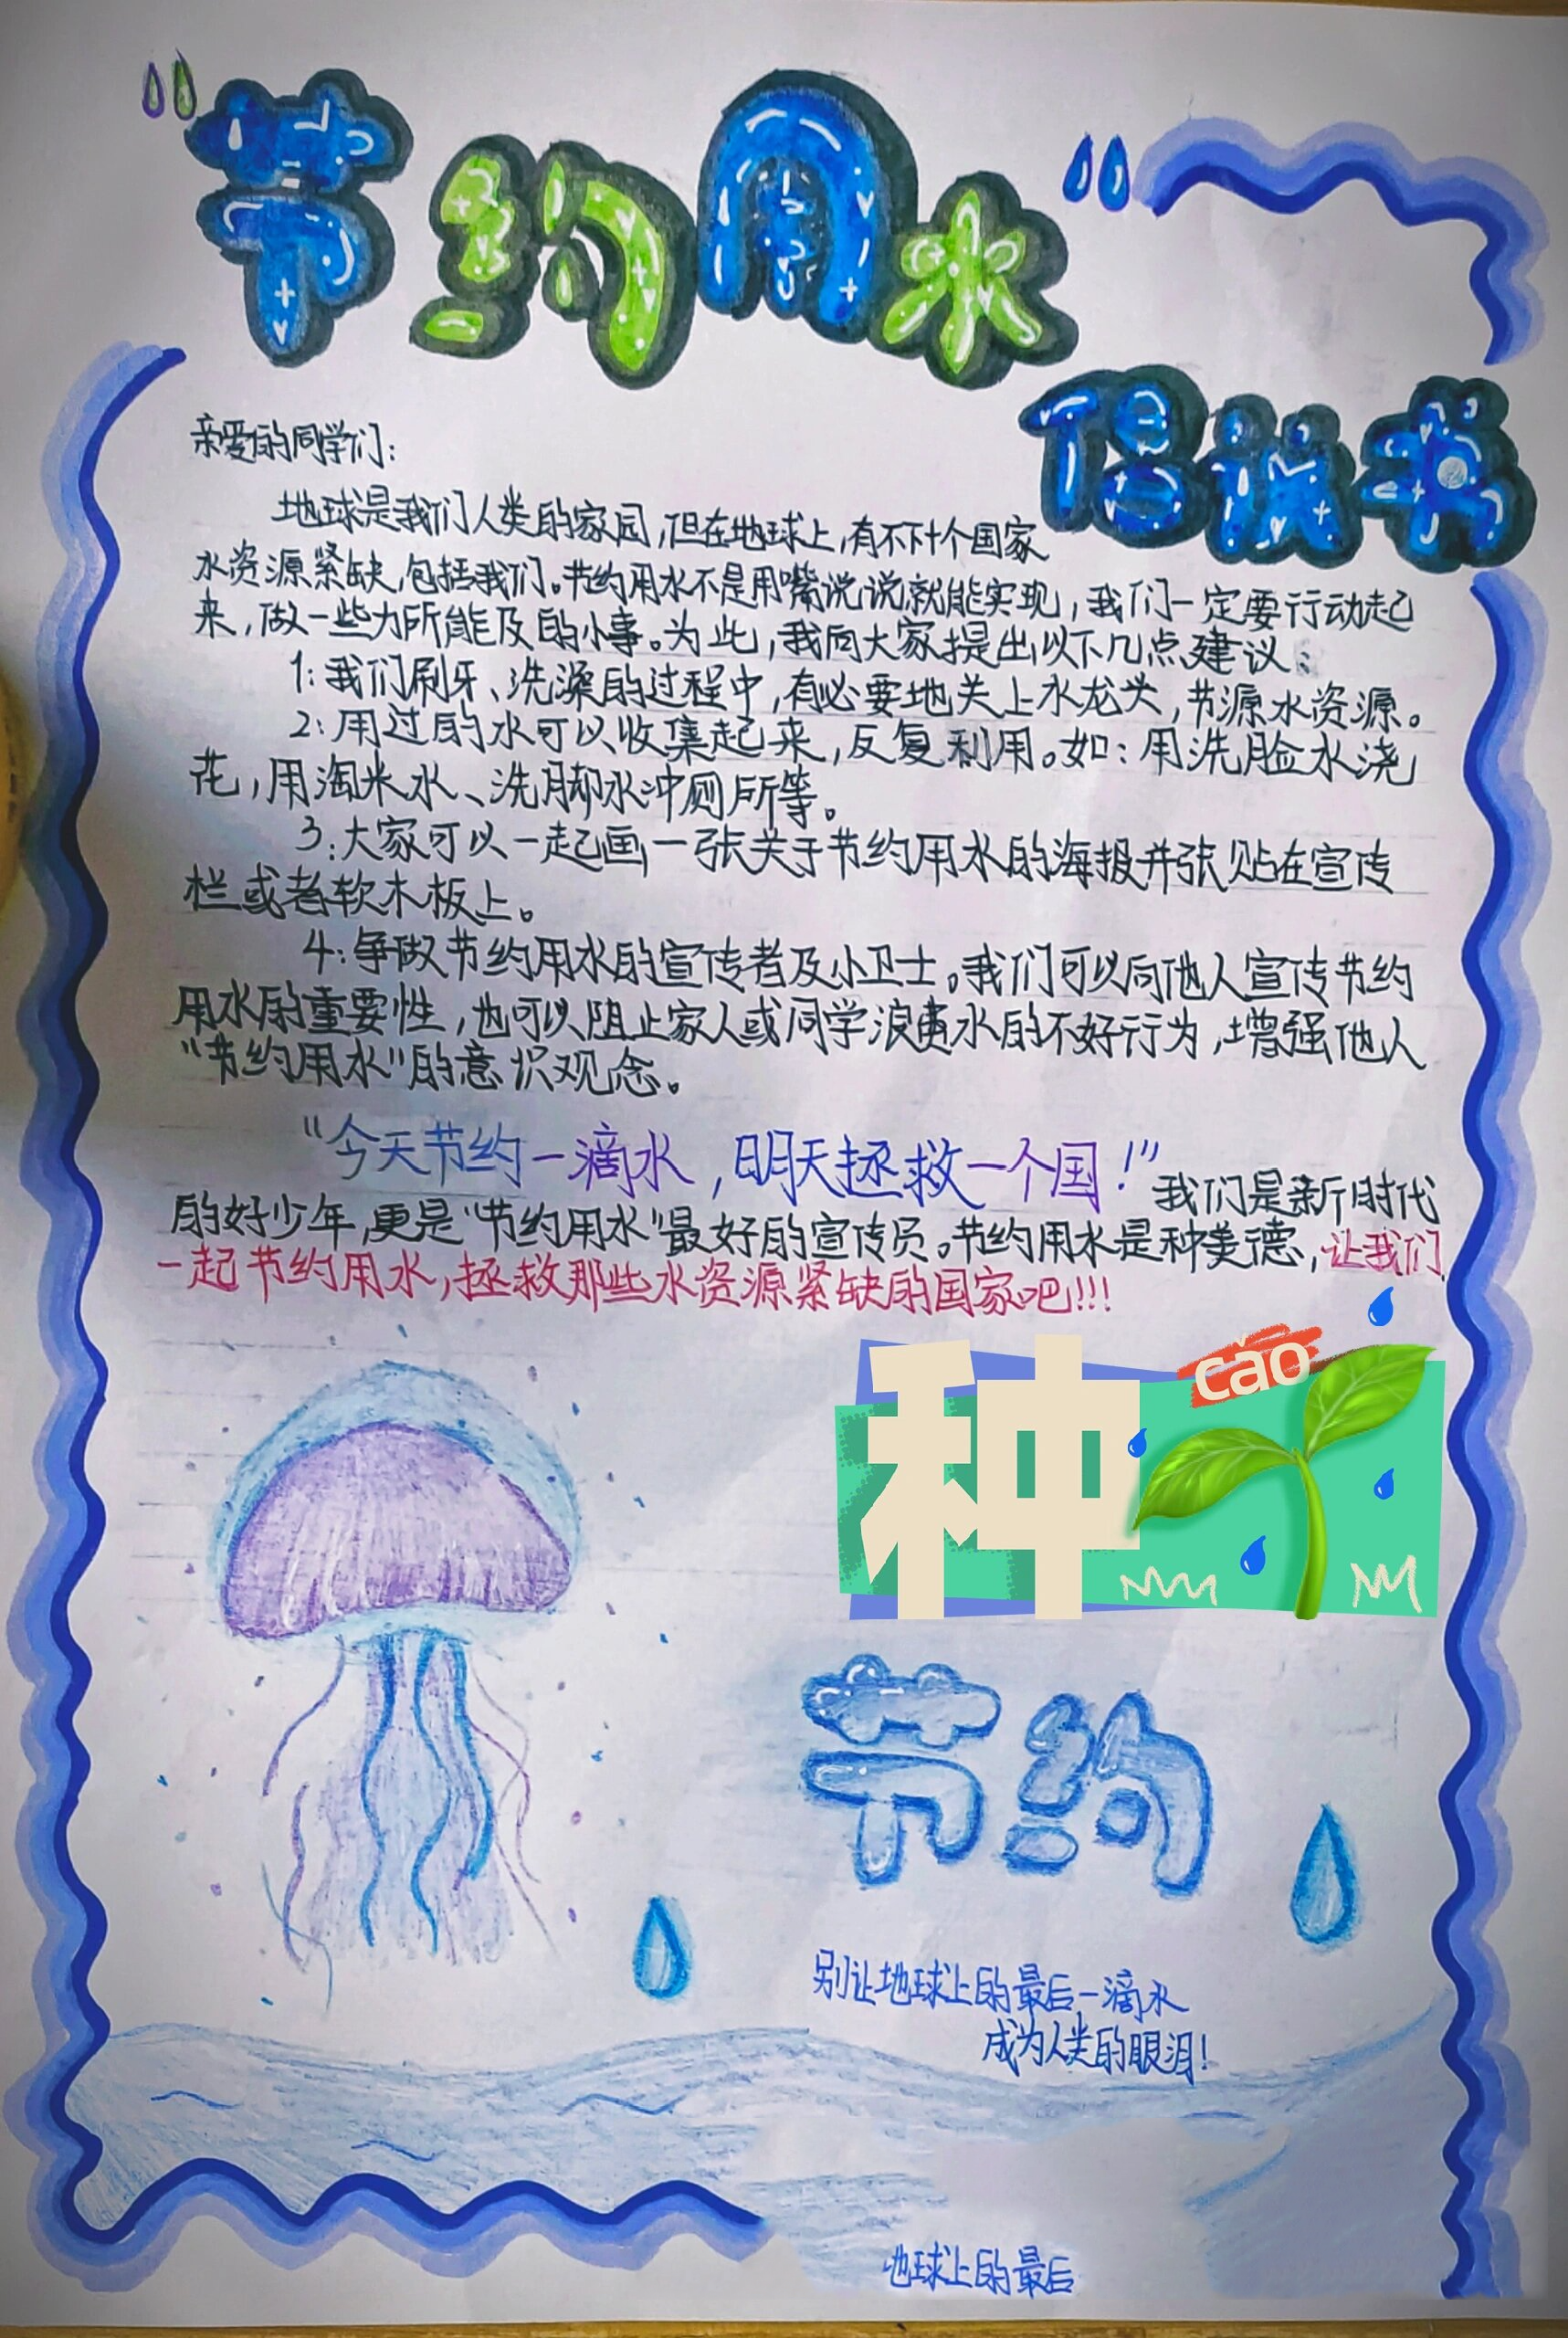 "节约用水"
倡议书
亲爱的同学们:
地球是我们人类的家园,但在地球上,有不下十个国家
水资源紧缺,包括我们。节约用水不是用嘴说说就能实现,我们一定要行动起
来,做一些力所能及的小事。为此,我向大家提出以下几点建议:
1:我们刷牙、洗澡的过程中,有必要地关上水龙头,节源水资源。
2:用过的水可以收集起来,反复利用。如:用洗脸水浇
花,用淘米水、洗脚水冲厕所等。
3:大家可以一起画一张关于节约用水的海报并张贴在宣传
栏或者软木板上。
4:争做节约用水的宣传者及小卫士。我们可以向他人宣传节约
用水的重要性,也可以阻止家人或同学浪费水的不好行为,增强他人
"节约用水"的意识观念。
"今天节约一滴水,明天拯救一个国!"我们是新时代
的好少年,更是"节约用水"最好的宣传员。节约用水是种美德,让我们
一起节约用水,拯救那些水资源紧缺的国家吧!!!
种
cǎo
节约
别让地球上的最后一滴水
成为人类的眼泪!
地球上的最后